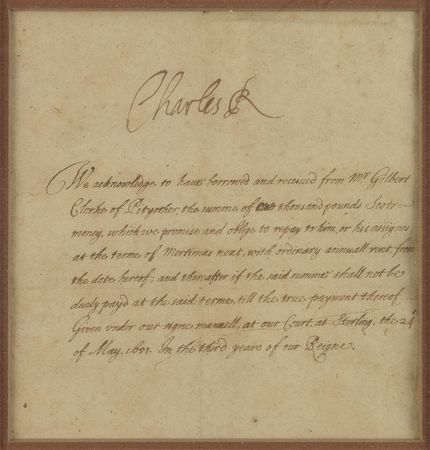 Charles R
We acknowledge to have borrowed and received from Mr Gilbert
Clerke of Pityother, the summe of one thousand pounds Scots
money, which we promise and oblige to repay to him, or his assignes
at the terme of Mertimas next, with ordinary annuall rent from
the date hereof; and thereafter if the said summe shall not be
duely payd at the said terme, till the true payment thereof.
Given vnder our signe manuell, at our Court at Sterling, the 24th
of May. 1651. In the third yeare of our Reigne.